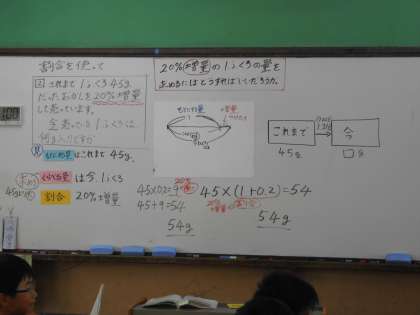 割合を使って
これまで1ふくろ45g
だったおかしを20%増量
して売っています。
今売っている1ふくろは
何g入りですか
20%増量の1ふくろの量を
求めるにはどうすればいいだろうか。
もとにする量
増量
1
これまで
今
45g
□g
もとにする量はこれまで45g。
くらべる量は今1ふくろ
割合 20%増量
45×0.2=9
45+9=54
54g
45×(1+0.2)=54
割合
54g